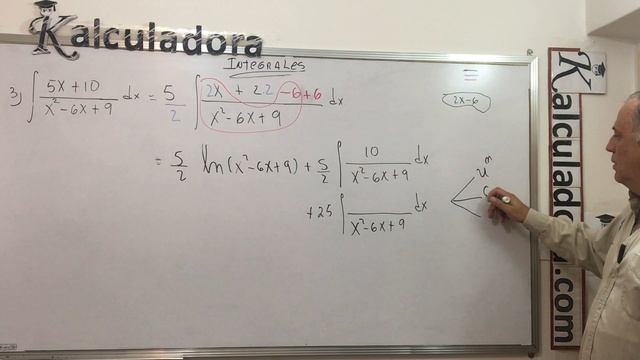 Kalculadora
INTEGRALES
3) ∫ (5x + 10)/(x² - 6x + 9) dx = 5/2 ∫ (2x + 2.2 - 6 + 6)/(x² - 6x + 9) dx
=
2x-6
= 5/2 ln(x² - 6x + 9) + 5/2 ∫ 10/(x² - 6x + 9) dx
+ 25 ∫ /(x² - 6x + 9) dx
uⁿ
Kalculadora.com